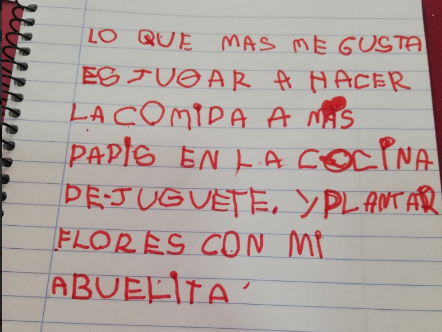 LO QUE MAS ME GUSTA
ES JUGAR A HACER
LA COMIDA A MIS
PAPIS EN LA COCINA
DE-JUGUETE. Y PLANTAR
FLORES CON MI
ABUELITA